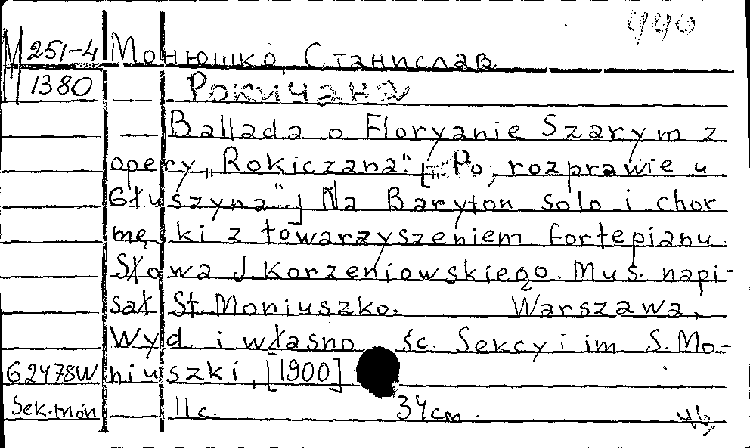 440
М 251-4 Монюшко, Станислав
1380 Рокичана
Ballada o Floryanie Szarym z
opery „Rokiczana". [Po rozprawie u
Głuszyna".] Na Baryton solo i chor
męski z towarzyszeniem fortepianu.
Słowa J. Korzeniowskiego. Mus. napi-
sał St. Moniuszko. Warszawa,
Wyd i własno śc. Sekcyi im S. Mo-
G2478W niuszki, [1900]
Sek.mon 11 c. 34cm.